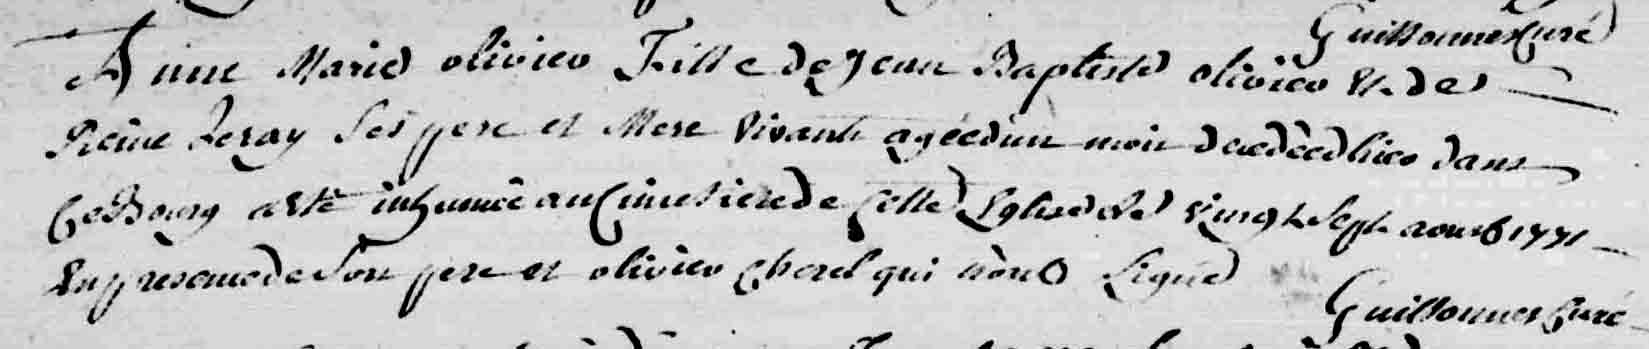 Guillonnet Curé
Anne Marie olivier Fille de Jean Baptiste olivier Et de
Reine Leray Ses pere et Mere Vivants agéé dun mois decedéé d'hier dans
Ce Bourg a Eté inhumêe au Cimetiere de Cette Eglise Le vingt Sept aoust 1771
En presence de Son pere et olivier cherel qui n'ont Signé
Guillonnet Curé